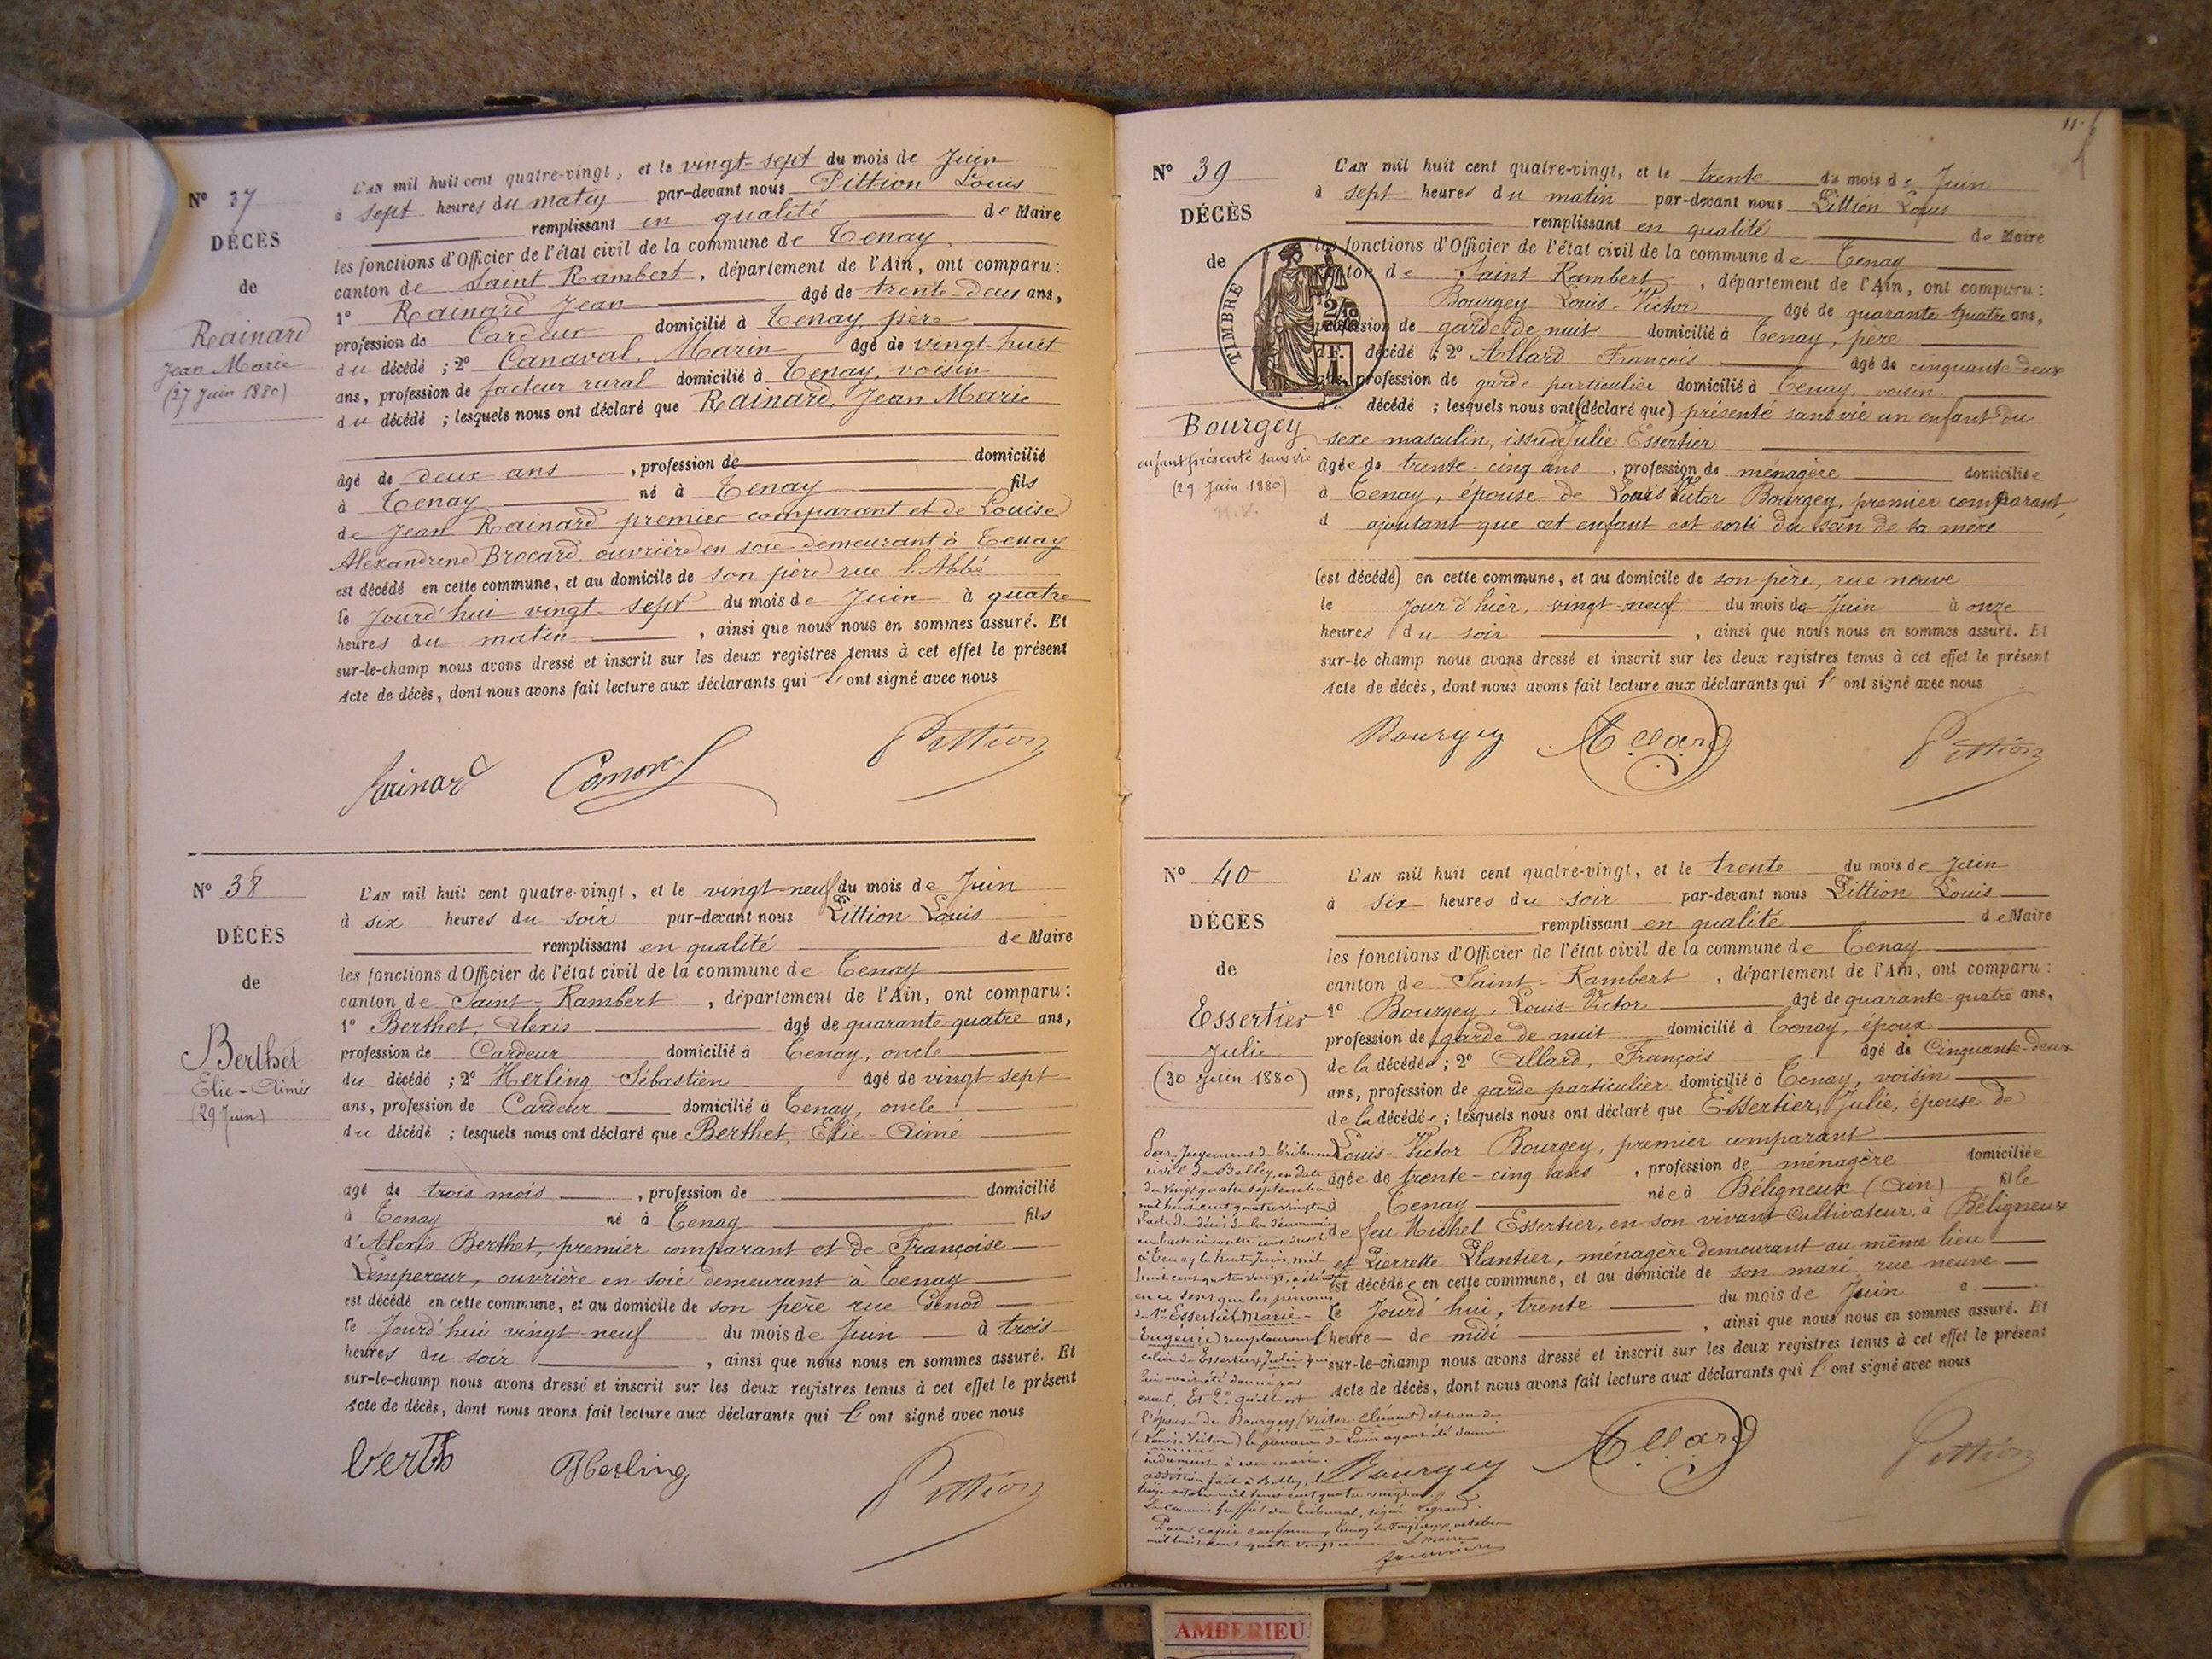 N° 37
DÉCÈS
de
Rainard
Jean Marie
(27 Juin 1880)
L'AN mil huit cent quatre-vingt, et le vingt-sept du mois de Juin
à sept heures du matin par-devant nous Pittion Louis
remplissant en qualité de Maire
les fonctions d'Officier de l'état civil de la commune de Tenay
canton de Saint Rambert, département de l'Ain, ont comparu:
1° Rainard Jean âgé de trente-deux ans,
profession de Cardeur domicilié à Tenay, père
du décédé ; 2° Canaval, Marin âgé de vingt-huit
ans, profession de facteur rural domicilié à Tenay, voisin
du décédé ; lesquels nous ont déclaré que Rainard, Jean Marie
âgé de deux ans, profession de domicilié
à Tenay né à Tenay fils
de Jean Rainard premier comparant et de Louise
Alexandrine Brocard ouvrière en soie demeurant à Tenay
est décédé en cette commune, et au domicile de son père rue l'Abbé
le Jourd'hui vingt-sept du mois de Juin à quatre
heures du matin, ainsi que nous nous en sommes assuré. Et
sur-le-champ nous avons dressé et inscrit sur les deux registres tenus à cet effet le présent
Acte de décès, dont nous avons fait lecture aux déclarants qui l'ont signé avec nous
Rainard Pittion
N° 38
DÉCÈS
de
Berthet
Elie-Aimé
(29 Juin)
L'AN mil huit cent quatre-vingt, et le vingt-neuf du mois de Juin
à six heures du soir par-devant nous Pittion Louis
remplissant en qualité de Maire
les fonctions d'Officier de l'état civil de la commune de Tenay
canton de Saint-Rambert, département de l'Ain, ont comparu:
1° Berthet, Alexis âgé de quarante-quatre ans,
profession de Cardeur domicilié à Tenay, oncle
du décédé ; 2° Herling Sébastien âgé de vingt-sept
ans, profession de Cardeur domicilié à Tenay, oncle
du décédé ; lesquels nous ont déclaré que Berthet, Elie-Aimé
âgé de trois mois, profession de domicilié
à Tenay né à Tenay fils
d'Alexis Berthet, premier comparant et de Françoise
Lempereur, ouvrière en soie demeurant à Tenay
est décédé en cette commune, et au domicile de son père rue Genod
le Jourd'hui vingt-neuf du mois de Juin à trois
heures du soir, ainsi que nous nous en sommes assuré. Et
sur-le-champ nous avons dressé et inscrit sur les deux registres tenus à cet effet le présent
Acte de décès, dont nous avons fait lecture aux déclarants qui l'ont signé avec nous
Herling Pittion
11
N° 39
DÉCÈS
de
TIMBRE
Bourgey
enfant présenté sans vie
(29 Juin 1880)
N.V.
L'AN mil huit cent quatre-vingt, et le trente du mois de Juin
à sept heures du matin par-devant nous Pittion Louis
remplissant en qualité de Maire
les fonctions d'Officier de l'état civil de la commune de Tenay
canton de Saint Rambert, département de l'Ain, ont comparu:
Bourgey Louis-Victor âgé de quarante-quatre ans,
profession de garde de nuit domicilié à Tenay, père
décédé ; 2° Allard François âgé de cinquante-deux
ans, profession de garde particulier domicilié à Tenay, voisin
décédé ; lesquels nous ont (déclaré que) présenté sans vie un enfant du
sexe masculin, issu de Julie Essertier
âgée de trente-cinq ans, profession de ménagère domiciliée
à Tenay, épouse de Louis Victor Bourgey, premier comparant,
ajoutant que cet enfant est sorti du sein de sa mère
(est décédé) en cette commune, et au domicile de son père, rue neuve
le jour d'hier, vingt-neuf du mois de Juin à onze
heures du soir, ainsi que nous nous en sommes assuré. Et
sur-le champ nous avons dressé et inscrit sur les deux registres tenus à cet effet le présent
Acte de décès, dont nous avons fait lecture aux déclarants qui l'ont signé avec nous
Bourgey Allard Pittion
N° 40
DÉCÈS
de
Essertier
Julie
(30 Juin 1880)
L'AN mil huit cent quatre-vingt, et le trente du mois de Juin
à six heures du soir par-devant nous Pittion Louis
remplissant en qualité de Maire
les fonctions d'Officier de l'état civil de la commune de Tenay
canton de Saint-Rambert, département de l'Ain, ont comparu:
1° Bourgey, Louis-Victor âgé de quarante-quatre ans,
profession de garde de nuit domicilié à Tenay, époux
de la décédée ; 2° Allard, François âgé de Cinquante-deux
ans, profession de garde particulier domicilié à Tenay, voisin
de la décédée ; lesquels nous ont déclaré que Essertier, Julie, épouse de
Louis-Victor Bourgey, premier comparant
âgée de trente-cinq ans, profession de ménagère domiciliée
à Tenay née à Béligneux (Ain) fille
de feu Michel Essertier, en son vivant Cultivateur, à Béligneux
et Pierrette Plantier, ménagère demeurant au même lieu
est décédée en cette commune, et au domicile de son mari rue neuve
le Jourd'hui, trente du mois de Juin à
l'heure de midi, ainsi que nous nous en sommes assuré. Et
sur-le-champ nous avons dressé et inscrit sur les deux registres tenus à cet effet le présent
Acte de décès, dont nous avons fait lecture aux déclarants qui l'ont signé avec nous
Par Jugement du tribunal
civil de Belley, en date
du vingt quatre septembre
mil huit cent quatre vingt
l'acte de décès de la dénommée
à Tenay le trente Juin, mil
huit cent quatre vingt, a été
en ce sens que les prénoms
de Essertier (Marie-
Eugénie) remplaceront
celui de Essertier, Julie qui
lui avait été donné par
Et 2° qu'elle est
l'épouse de Bourgey (Victor-Clément) et non de
(Louis-Victor) le prénom de Louis ayant été donné
indument à son mari.
Le commis greffier du Tribunal, signé Legrand.
Pour copie conforme, Tenay le octobre
mil huit cent quatre vingt Le maire
Bourgey Allard Pittion
AMBERIEU